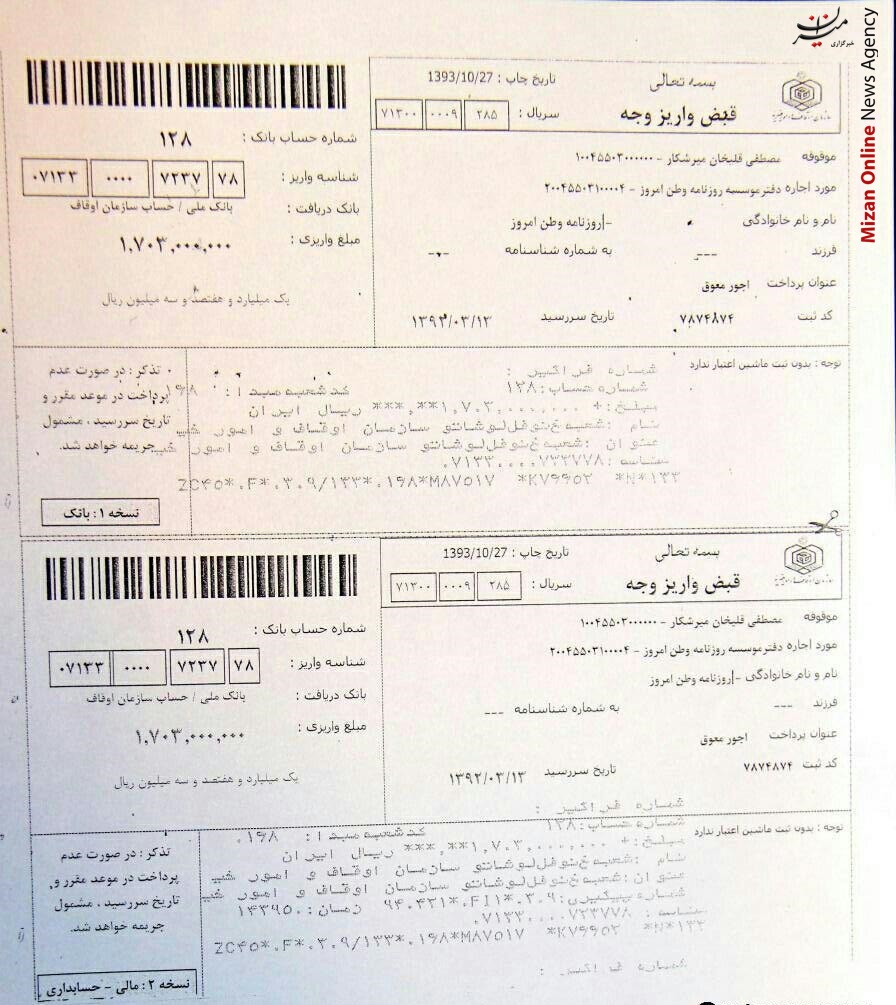 میزان
خبرگزاری
Mizan Online News Agency
بسمه تعالی
تاریخ چاپ : 1393/10/27
قبض واریز وجه
سریال : ۲۸۵ ۰۰۰۹ ۷۱۳۰۰
شماره حساب بانک : ۱۲۸
شناسه واریز : ۷۸ ۷۲۳۷ ۰۰۰۰ ۰۷۱۳۳
بانک دریافت : بانک ملی / حساب سازمان اوقاف
مبلغ واریزی : ۱,۷۰۳,۰۰۰,۰۰۰
یک میلیارد و هفتصد و سه میلیون ریال
موقوفه مصطفی قلیخان میرشکار - ۱۰۰۴۵۵۰۳۰۰۰۰۰۰
مورد اجاره دفترموسسه روزنامه وطن امروز - ۲۰۰۴۵۵۰۳۱۰۰۰۰۴
نام و نام خانوادگی -|روزنامه وطن امروز
فرزند --- به شماره شناسنامه ---
عنوان پرداخت اجور معوق
کد ثبت ۷۸۷۴۸۷۴ تاریخ سررسید ۱۳۹۲/۰۳/۱۳
توجه : بدون ثبت ماشین اعتبار ندارد
تذکر : در صورت عدم
پرداخت در موعد مقرر و
تاریخ سررسید ، مشمول
جریمه خواهد شد.
شماره فراگیر :
شماره حساب: ۱۲۸ کدشعبه مبدا :
مبلغ: + ۱,۷۰۳,۰۰۰,۰۰۰**,*** ریال ایران
نام : شعبه نوفل لوشاتو سازمان اوقاف و امور
عنوان : شعبه نوفل لوشاتو سازمان اوقاف و امور
شناسه :
نسخه ۱ : بانک
بسمه تعالی
تاریخ چاپ : 1393/10/27
قبض واریز وجه
سریال : ۲۸۵ ۰۰۰۹ ۷۱۳۰۰
شماره حساب بانک : ۱۲۸
شناسه واریز : ۷۸ ۷۲۳۷ ۰۰۰۰ ۰۷۱۳۳
بانک دریافت : بانک ملی / حساب سازمان اوقاف
مبلغ واریزی : ۱,۷۰۳,۰۰۰,۰۰۰
یک میلیارد و هفتصد و سه میلیون ریال
موقوفه مصطفی قلیخان میرشکار - ۱۰۰۴۵۵۰۳۰۰۰۰۰۰
مورد اجاره دفترموسسه روزنامه وطن امروز - ۲۰۰۴۵۵۰۳۱۰۰۰۰۴
نام و نام خانوادگی -|روزنامه وطن امروز
فرزند --- به شماره شناسنامه ---
عنوان پرداخت اجور معوق
کد ثبت ۷۸۷۴۸۷۴ تاریخ سررسید ۱۳۹۲/۰۳/۱۳
توجه : بدون ثبت ماشین اعتبار ندارد
تذکر : در صورت عدم
پرداخت در موعد مقرر و
تاریخ سررسید ، مشمول
جریمه خواهد شد.
شماره فراگیر :
شماره حساب: ۱۲۸ کدشعبه مبدا :
مبلغ: + ۱,۷۰۳,۰۰۰,۰۰۰**,*** ریال ایران
نام : شعبه نوفل لوشاتو سازمان اوقاف و امور
عنوان : شعبه نوفل لوشاتو سازمان اوقاف و امور
شماره پیگیری: زمان :
شناسه :
شماره فراگیر :
نسخه ۲ : مالی - حسابداری